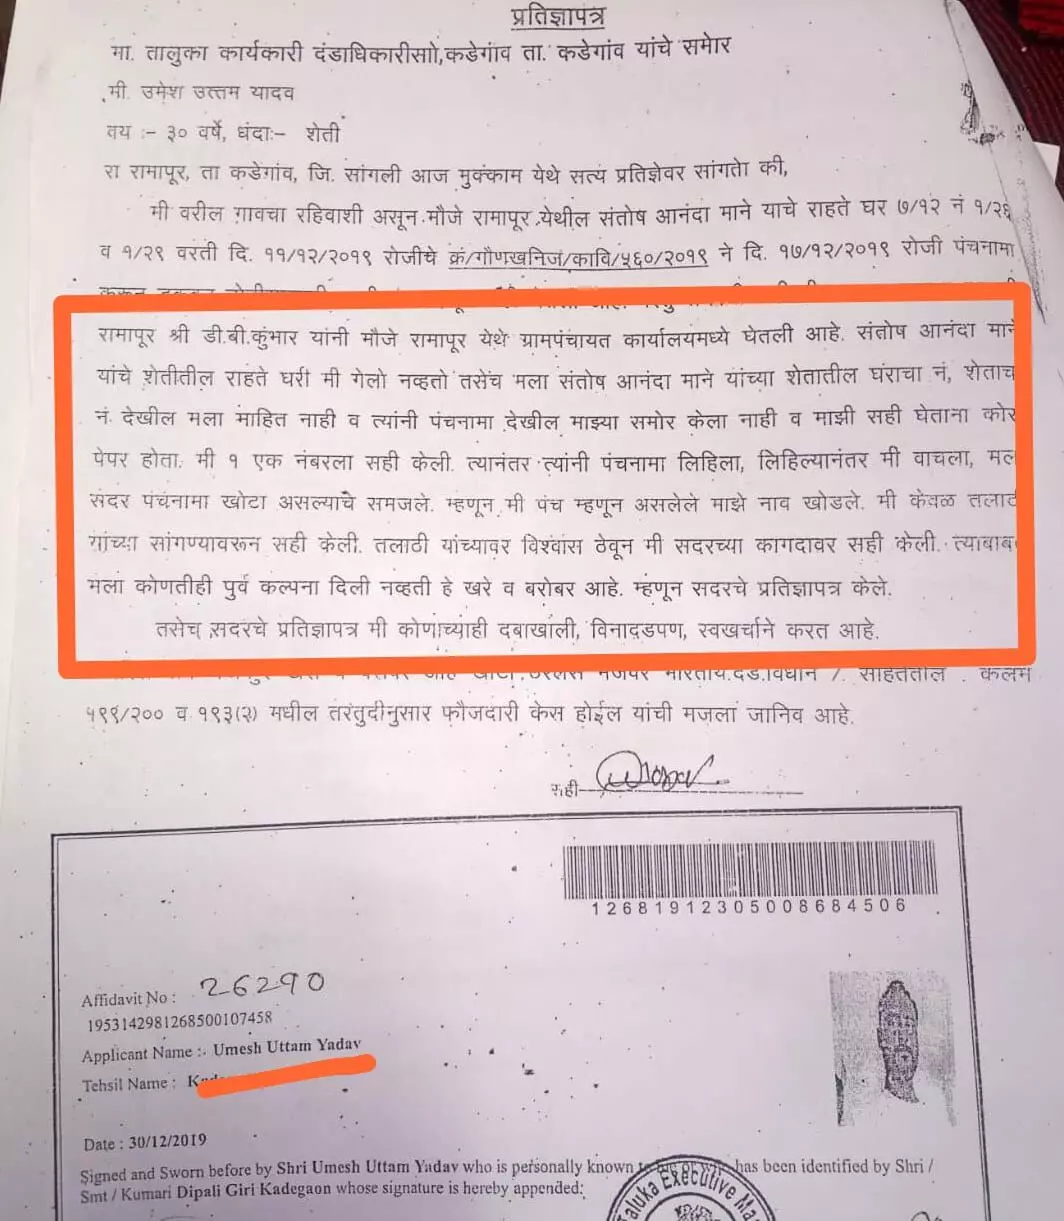 प्रतिज्ञापत्र
मा. तालुका कार्यकारी दंडाधिकारीसाो,कडेगांव ता. कडेगांव यांचे समोर
मी. उमेश उत्तम यादव
वय :- ३० वर्षे, धंदाः- शेती
रा रामापूर, ता कडेगांव, जि. सांगली आज मुक्काम येथे सत्य प्रतिज्ञेवर सांगतो की,
मी वरील गावचा रहिवाशी असून मौजे रामापूर येथील संतोष आनंदा माने याचे राहते घर ७/१२ नं १/२६
व १/२९ वरती दि. ११/१२/२०१९ रोजीचे क्रं/गौणखनिजं/कावि/५६०/२०१९ ने दि. १७/१२/२०१९ रोजी पंचनामा
रामापूर श्री डी.बी.कुंभार यांनी मौजे रामापूर येथे ग्रामपंचायत कार्यालयमध्ये घेतली आहे. संतोष आनंदा माने
यांचे शेतीतील राहते घरी मी गेलो नव्हतो तसेच मला संतोष आनंदा माने यांच्या शेतातील घंराचा नं, शेताच
नं. देखील मला माहित नाही व त्यांनी पंचनामा देखील माझ्या समोर केला नाही व माझी सही घेताना कोर
पेपर होता. मी १ एक नंबरला सही केली. त्यानंतर त्यांनी पंचनामा लिहिला, लिहिल्यानंतर मी वाचला, मल
सदर पंचनामा खोटा असल्याचे समजले. म्हणून मी पंच म्हणून असलेले माझे नाव खोडले. मी केवळ तलाठ
यांच्या सांगण्यावरून सही केली. तलाठी यांच्यावर विश्वास ठेवून मी सदरच्या कागदावर सही केली. त्याबाब
मला कोणतीही पुर्व कल्पना दिली नव्हती हे खरे व बरोबर आहे. म्हणून सदरचे प्रतिज्ञापत्र केले.
तसेच सदरचे प्रतिज्ञापत्र मी कोणाच्याही दबाखाली, विनादडपण, स्वखर्चाने करत आहे.
भारतीय.दंड.विधान / साहतेतील . कलम
५९९/२०० व १९३(२) मधील तरतुदीनुसार फौजदारी केस होईल यांची मजला जानिव आहे.
सही
12681912305008684506
Affidavit No : 26290
1953142981268500107458
Applicant Name :- Umesh Uttam Yadav
Tehsil Name :
Date : 30/12/2019
Signed and Sworn before by Shri Umesh Uttam Yadav who is personally known has been identified by Shri /
Smt / Kumari Dipali Giri Kadegaon whose signature is hereby appended:
Taluka Executive